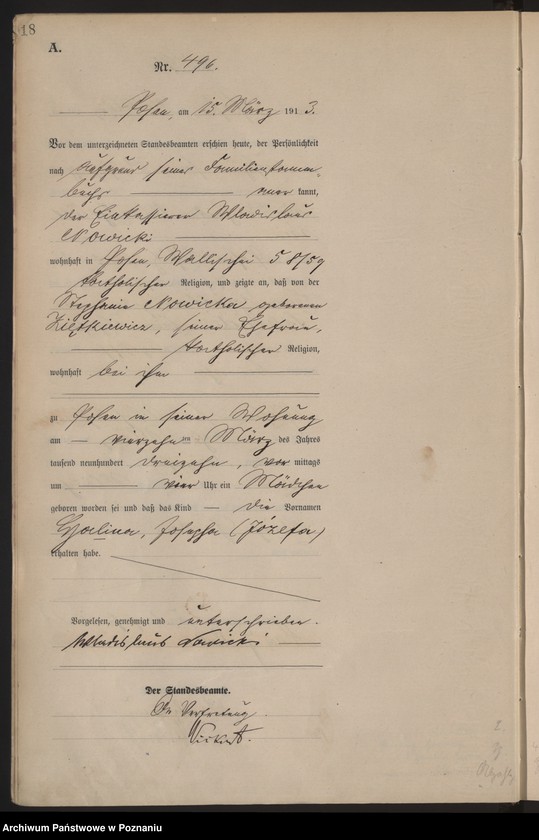 18
A.
Nr. 496.
Posen, am 15. März 1913.
Vor dem unterzeichneten Standesbeamten erschien heute, der Persönlichkeit
nach auf Grund seines Familienstamm-
buchs anerkannt,
der Einkassierer Wladislaus
Nowicki
wohnhaft in Posen, Wallischei 58/59
katholischer Religion, und zeigte an, daß von der
Stephanie Nowicka geborenen
Ziętkiewicz, seiner Ehefrau,
katholischer Religion,
wohnhaft bei ihm
zu Posen in seiner Wohnung
am vierzehnten März des Jahres
tausend neunhundert dreizehn, vor mittags
um vier Uhr ein Mädchen
geboren worden sei und daß das Kind die Vornamen
Halina, Josepha (Józefa)
erhalten habe.
Vorgelesen, genehmigt und unterschrieben.
Wladislaus Nowicki
Der Standesbeamte.
In Vertretung.
Archiwum Państwowe w Poznaniu